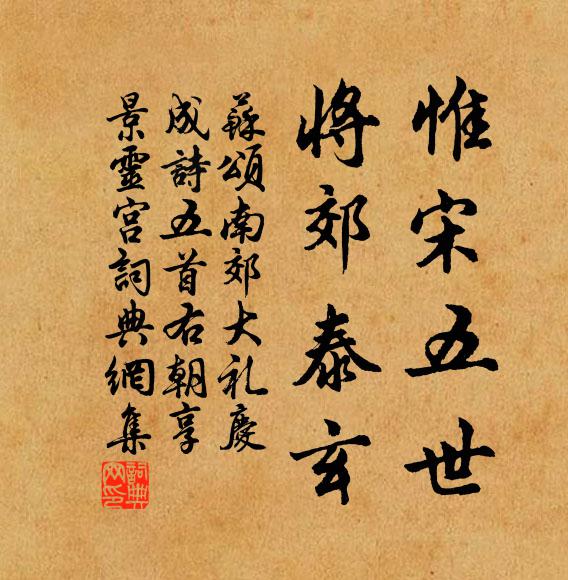 惟宋五世
将郊泰玄
蘇頌南郊大礼慶
成詩五首右朝享
景靈宮詞典網集
詞典网印